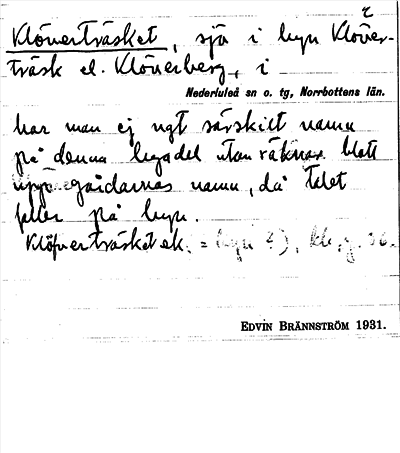 Klöverträsket, sjö i byn Klöver-
träsk el. Klöverberg, i
Nederluleå sn o. tg, Norrbottens län.
har man ej ngt särskilt namn
på denna bydel utan räknar blott
upp gårdarnas namn, då talet
faller på byn.
Klöfverträsket ek. = byn
EDVIN BRÄNNSTRÖM 1931.